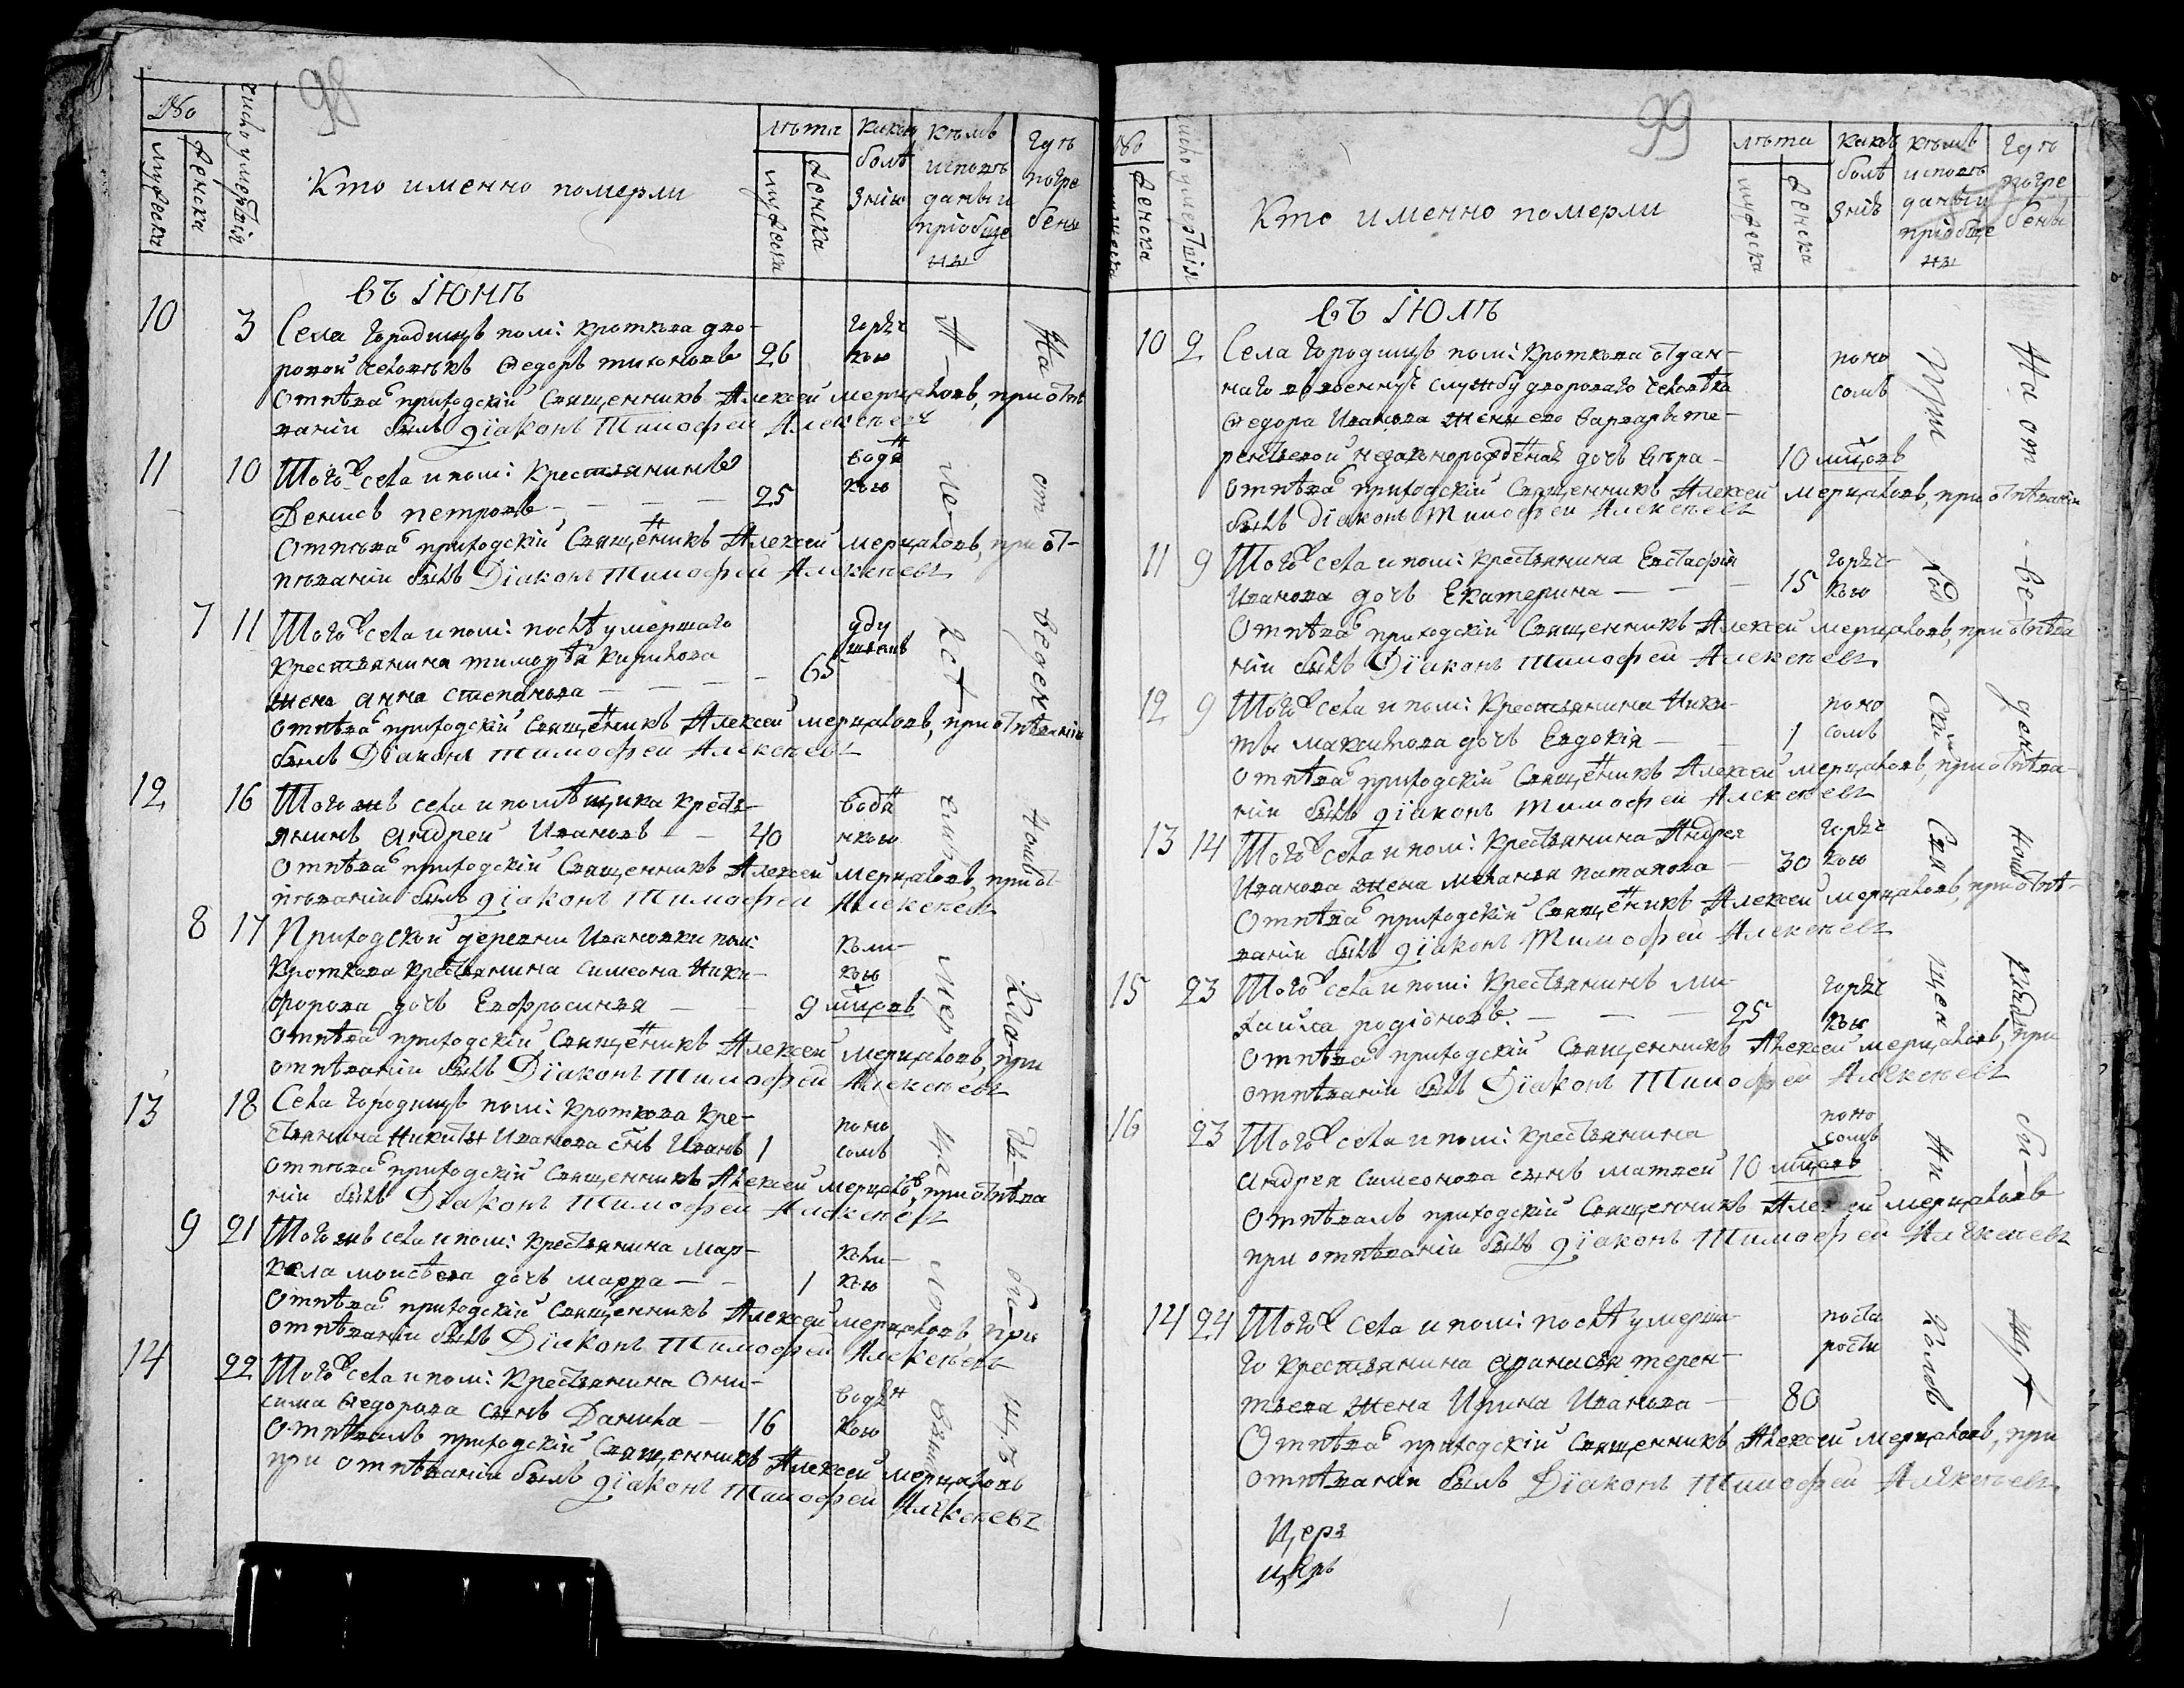 98
№
мужеска
женска
число умертвія
Кто именно померли
лѣта
мужеска
женска
какою
болѣ
знію
кѣмъ
исповѣ
даны и
пріобще
ны
гдѣ
погре
бены
въ Іюнѣ
10 3 Села Городищъ пом: Кроткова дво-
ровой человѣкъ Ѳедоръ Тихоновъ 26 горяч
кою
Отпѣва приходскій Священникъ Алексей Мерцаловъ, при отпѣ
ваніи былъ Діаконъ Тимофей Алексѣевъ
11 10 Того села и пом: Крестьянинъ
Денисъ Петровъ — — — 25 водян
кою
Отпѣва приходскій Священникъ Алексей Мерцаловъ, при от-
пѣваніи былъ Діаконъ Тимофей Алексѣевъ
7 11 Того села и пом: послѣ умершаго
Крестьянина Тимофѣа Кирилова
жена Анна Степанова — — — — 65 уду
шьемъ
Отпѣва приходскій Священникъ Алексей Мерцаловъ, при отпѣваніи
былъ Діаконъ Тимофей Алексѣевъ
12 16 Того жъ села и помѣщика крест-
янинъ Андрей Ивановъ — — 40 водя
нкою
Отпѣва приходскій Священникъ Алексей Мерцаловъ, при от
пѣваніи былъ діаконъ Тимофей Алексѣевъ
8 17 Приходской деревни Ивановки пом:
Кроткова Крестьянина Симеона Ники-
форова дочь Евфросинья — — 9 мцовъ коли-
кою
Отпѣва приходскій Священникъ Алексей Мерцаловъ, при
отпѣваніи былъ Діаконъ Тимофей Алексѣевъ
13 18 Села Городищъ пом: Кроткова Кре-
стьянина Никиты Иванова снъ Иванъ 1 поно
сомъ
Отпѣва приходскій Священникъ Алексей Мерцаловъ, при отпѣва
ніи былъ Діаконъ Тимофей Алексѣевъ
9 21 Того жъ села и пом: Крестьянина Мар-
кела Моисѣева дочь Марфа — — 1 коли-
кою
Отпѣва приходскій Священникъ Алексей Мерцаловъ, при
отпѣваніи былъ Діаконъ Тимофей Алексѣевъ
14 22 Того села и пом: Крестьянина Они-
сима Ѳедорова сынъ Данила — 16 водян
кою
Отпѣвалъ приходскій Священникъ Алексей Мерцаловъ
при отпѣваніи былъ діаконъ Тимофей Алексѣевъ
На от веден номъ клад би щѣ
99
№
женска
число умертвія
Кто именно померли
лѣта
мужеска
женска
какою
болѣ
знію
кѣмъ
исповѣ
даны и
пріобще
ны
гдѣ
погре
бены
въ Іюлѣ
10 2 Села Городищъ пом: Кроткова отдан-
наго въ военную службу двороваго человѣка
Ѳедора Иванова жены его Варвары Те-
рентьевой незаконорожденая дочь Вѣра — 10 мцовъ поно
сомъ
Отпѣва приходскій Священникъ Алексей Мерцаловъ, при отпѣваніи
былъ Діаконъ Тимофей Алексѣевъ
11 9 Того села и пом: Крестьянина Евстафія
Иванова дочь Екатерина — — — 15 горяч-
кою
Отпѣва приходскій Священникъ Алексей Мерцаловъ, при отпѣва
ніи былъ Діаконъ Тимофей Алексѣевъ
12 9 Того села и пом: Крестьянина Ники-
ты Максимова дочь Евдокія — — 1 поно
сомъ
Отпѣва приходскій Священникъ Алексей Мерцаловъ, при отпѣва-
ніи былъ діаконъ Тимофей Алексѣевъ
13 14 Того села и пом: Крестьянина Андрея
Иванова жена Меланья Патапова — 30 горяч
кою
Отпѣва приходскій Священникъ Алексей Мерцаловъ, при отпѣ-
ваніи былъ діаконъ Тимофей Алексѣевъ
15 23 Того села и пом: Крестьянинъ Ми-
хайла Родіоновъ. — — — 25 горяч
кою
Отпѣва приходскій Священникъ Алексей Мерцаловъ, при
отпѣваніи былъ Діаконъ Тимофей Алексѣевъ
16 23 Того села и пом: Крестьянина
Андрея Симеонова сынъ Матвей 10 мцовъ поно
сомъ
Отпѣвалъ приходскій Священникъ Алексей Мерцаловъ
при отпѣваніи былъ діаконъ Тимофей Алексѣевъ
14 24 Того села и пом: послѣ умерша-
го Крестьянина Афанасья Терен-
тьева жена Ирина Иванова — 80 поста
рости
Отпѣва приходскій Священникъ Алексей Мерцаловъ, при
отпѣваніи былъ Діаконъ Тимофей Алексѣевъ
При ход скім Свя щен ни комъ
На от -ве- ден номъ клад би- щѣ